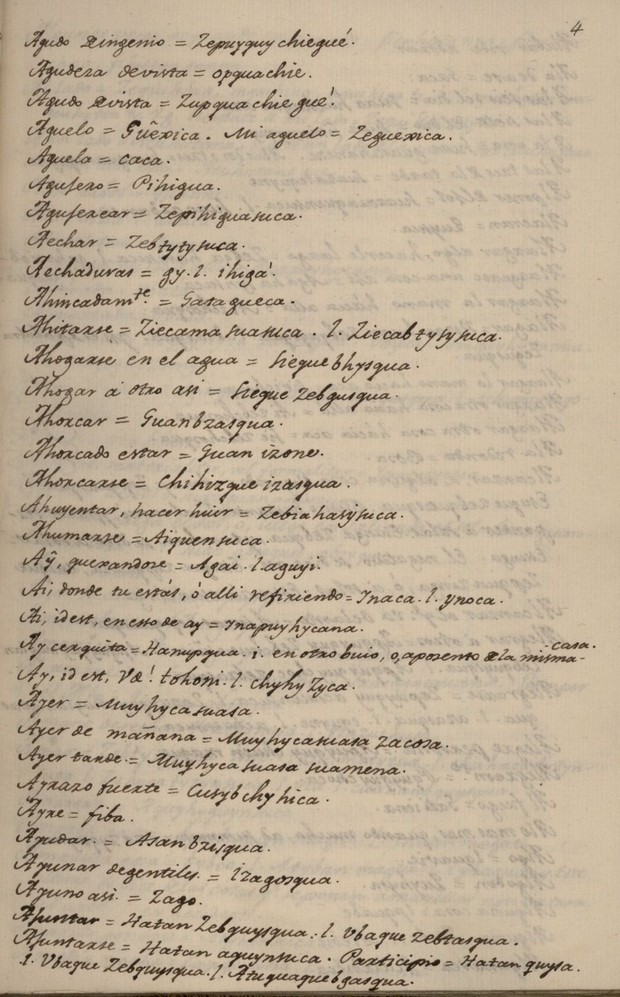 4
Agudo de ingenio = Zepuyquy chie gué.
Agudeza de vista = opquachie.
Agudo de vista = Zupqua chie gué!
Aguelo = Guêxica. Mi aguelo = Zeguexica.
Aguela = caca.
Agujero = Pihigua.
Agujerear = Zepihiguasuca.
Aechar = Zebtytysuca.
Aechaduras = gy. l. ihigá.
Ahincadam.te = Gatagueca.
Ahitarse = Ziecama suasuca. l. Ziecabtysysuca.
Ahogarse en el agua = siegue bhysqua.
Ahogar á otro asi = siegue Zebgusqua.
Ahorcar = Guanbzasqua.
Ahorcado estar = Guan izone.
Ahorcarse = Chihizque izasqua.
Ahuyentar, hacer huir = Zebiahasysuca.
Ahumarse = Aiquensuca.
Aÿ, quexandose = Agai. l. aguyi.
Ai, donde tu estás, ó alli refiriendo = Ynaca. l. ynoca.
Ai, id est, en esso de ay = Ynapuyhycana.
Ay cerquita = Hanupqua. i. en otro buio, o, aposento de la misma casa.
Ay, id est, Væ! tohoni. l. chyhyzyca.
Ayer = Muyhyca suasa.
Ayer de mañana = Muyhyca suasa zacosa.
Ayer tarde = Muyhyca suasa suamena.
Ayrazo fuerte = Cusyb chyhica.
Ayre = fiba.
Ayudar = Asan bzisqua.
Ayunar de gentiles = izagosqua.
Ayuno asi = Zago.
Ajuntar = Hatan Zebquysqua. l. Vbaque Zebtasqua.
Ajuntarse = Hatan aquynsuca. Participio = Hatan quysa.
l. Vbaque Zebquysqua. l. Atuguaque bgasqua.